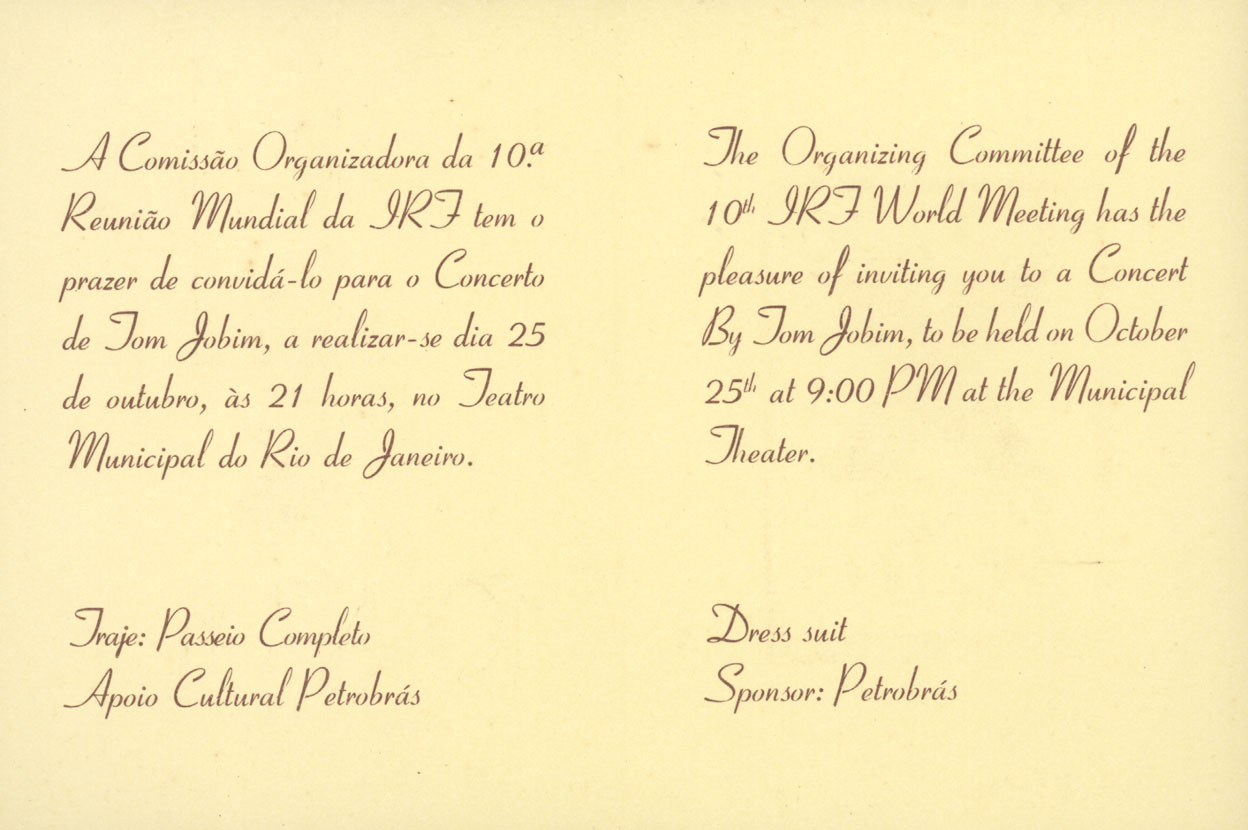 A Comissão Organizadora da 10.ª
Reunião Mundial da IRF tem o
prazer de convidá-lo para o Concerto
de Tom Jobim, a realizar-se dia 25
de outubro, às 21 horas, no Teatro
Municipal do Rio de Janeiro.
Traje: Passeio Completo
Apoio Cultural Petrobrás
The Organizing Committee of the
10th IRF World Meeting has the
pleasure of inviting you to a Concert
By Tom Jobim, to be held on October
25th at 9:00 PM at the Municipal
Theater.
Dress suit
Sponsor: Petrobrás